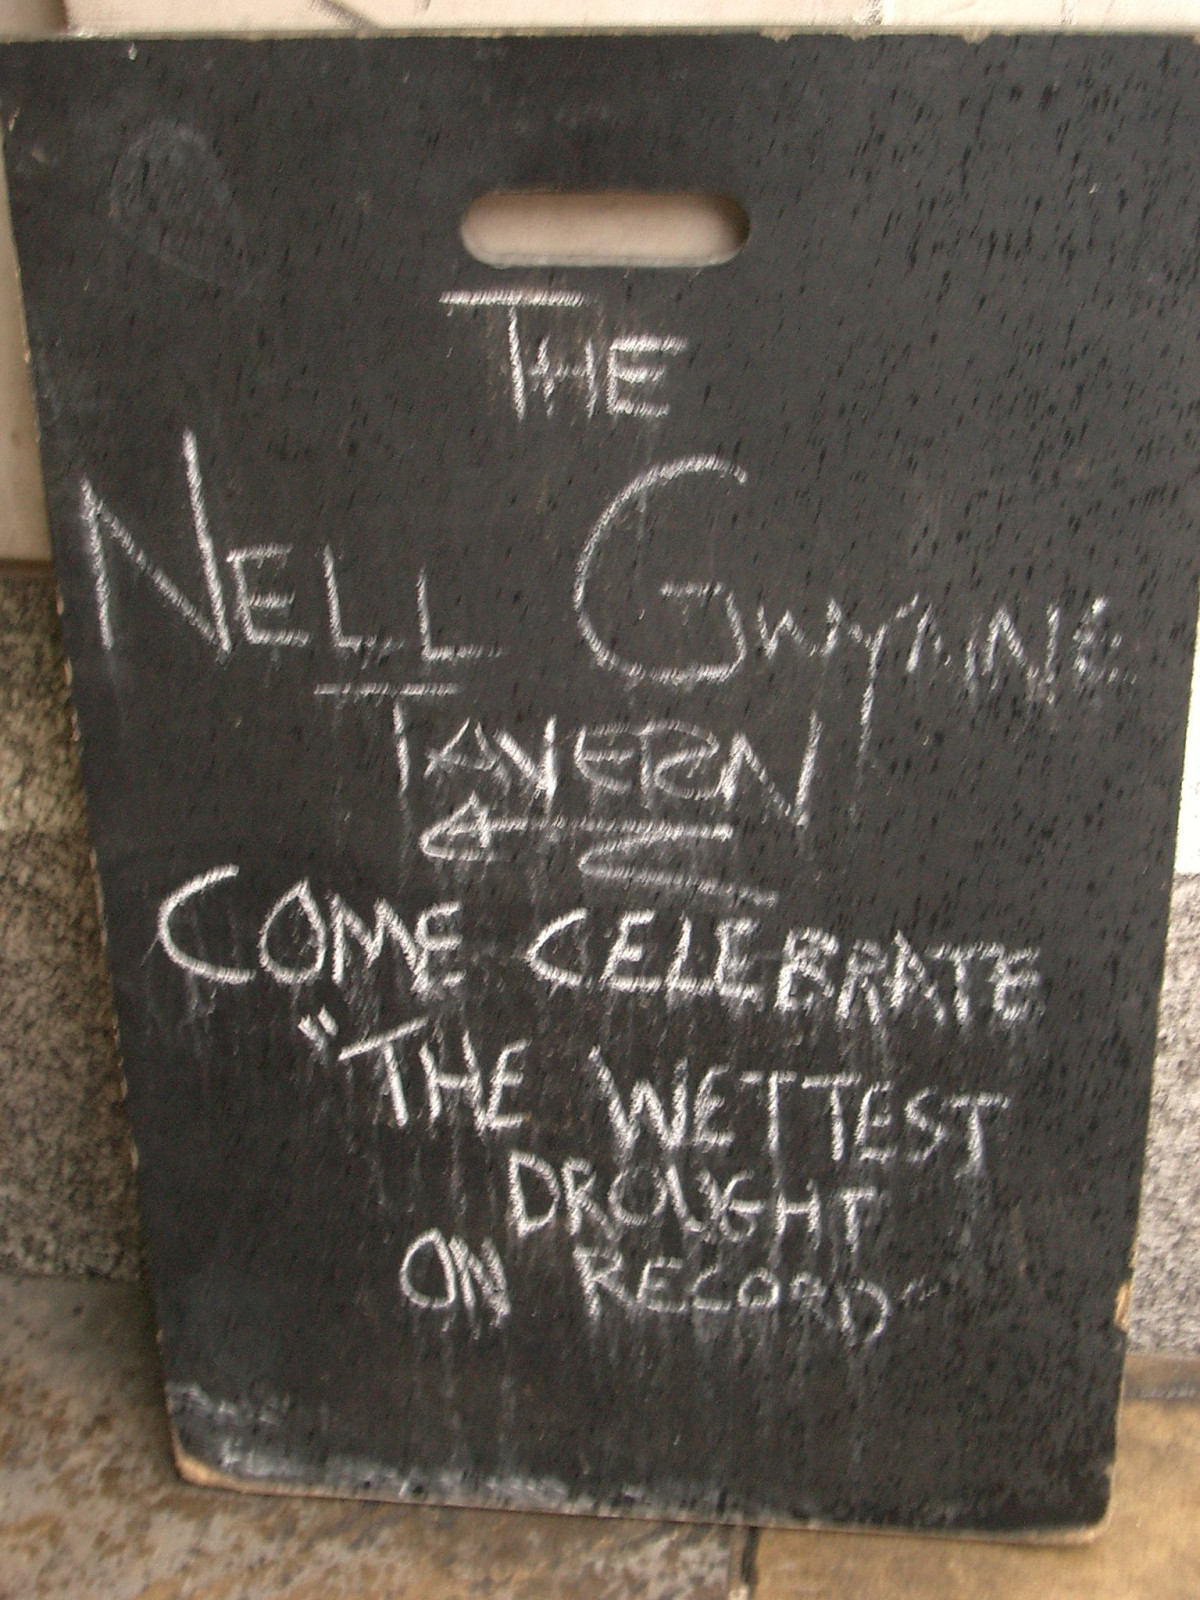 THE
NELL GWYNNE
TAVERN
COME CELEBRATE
"THE WETTEST
DROUGHT
ON RECORD"